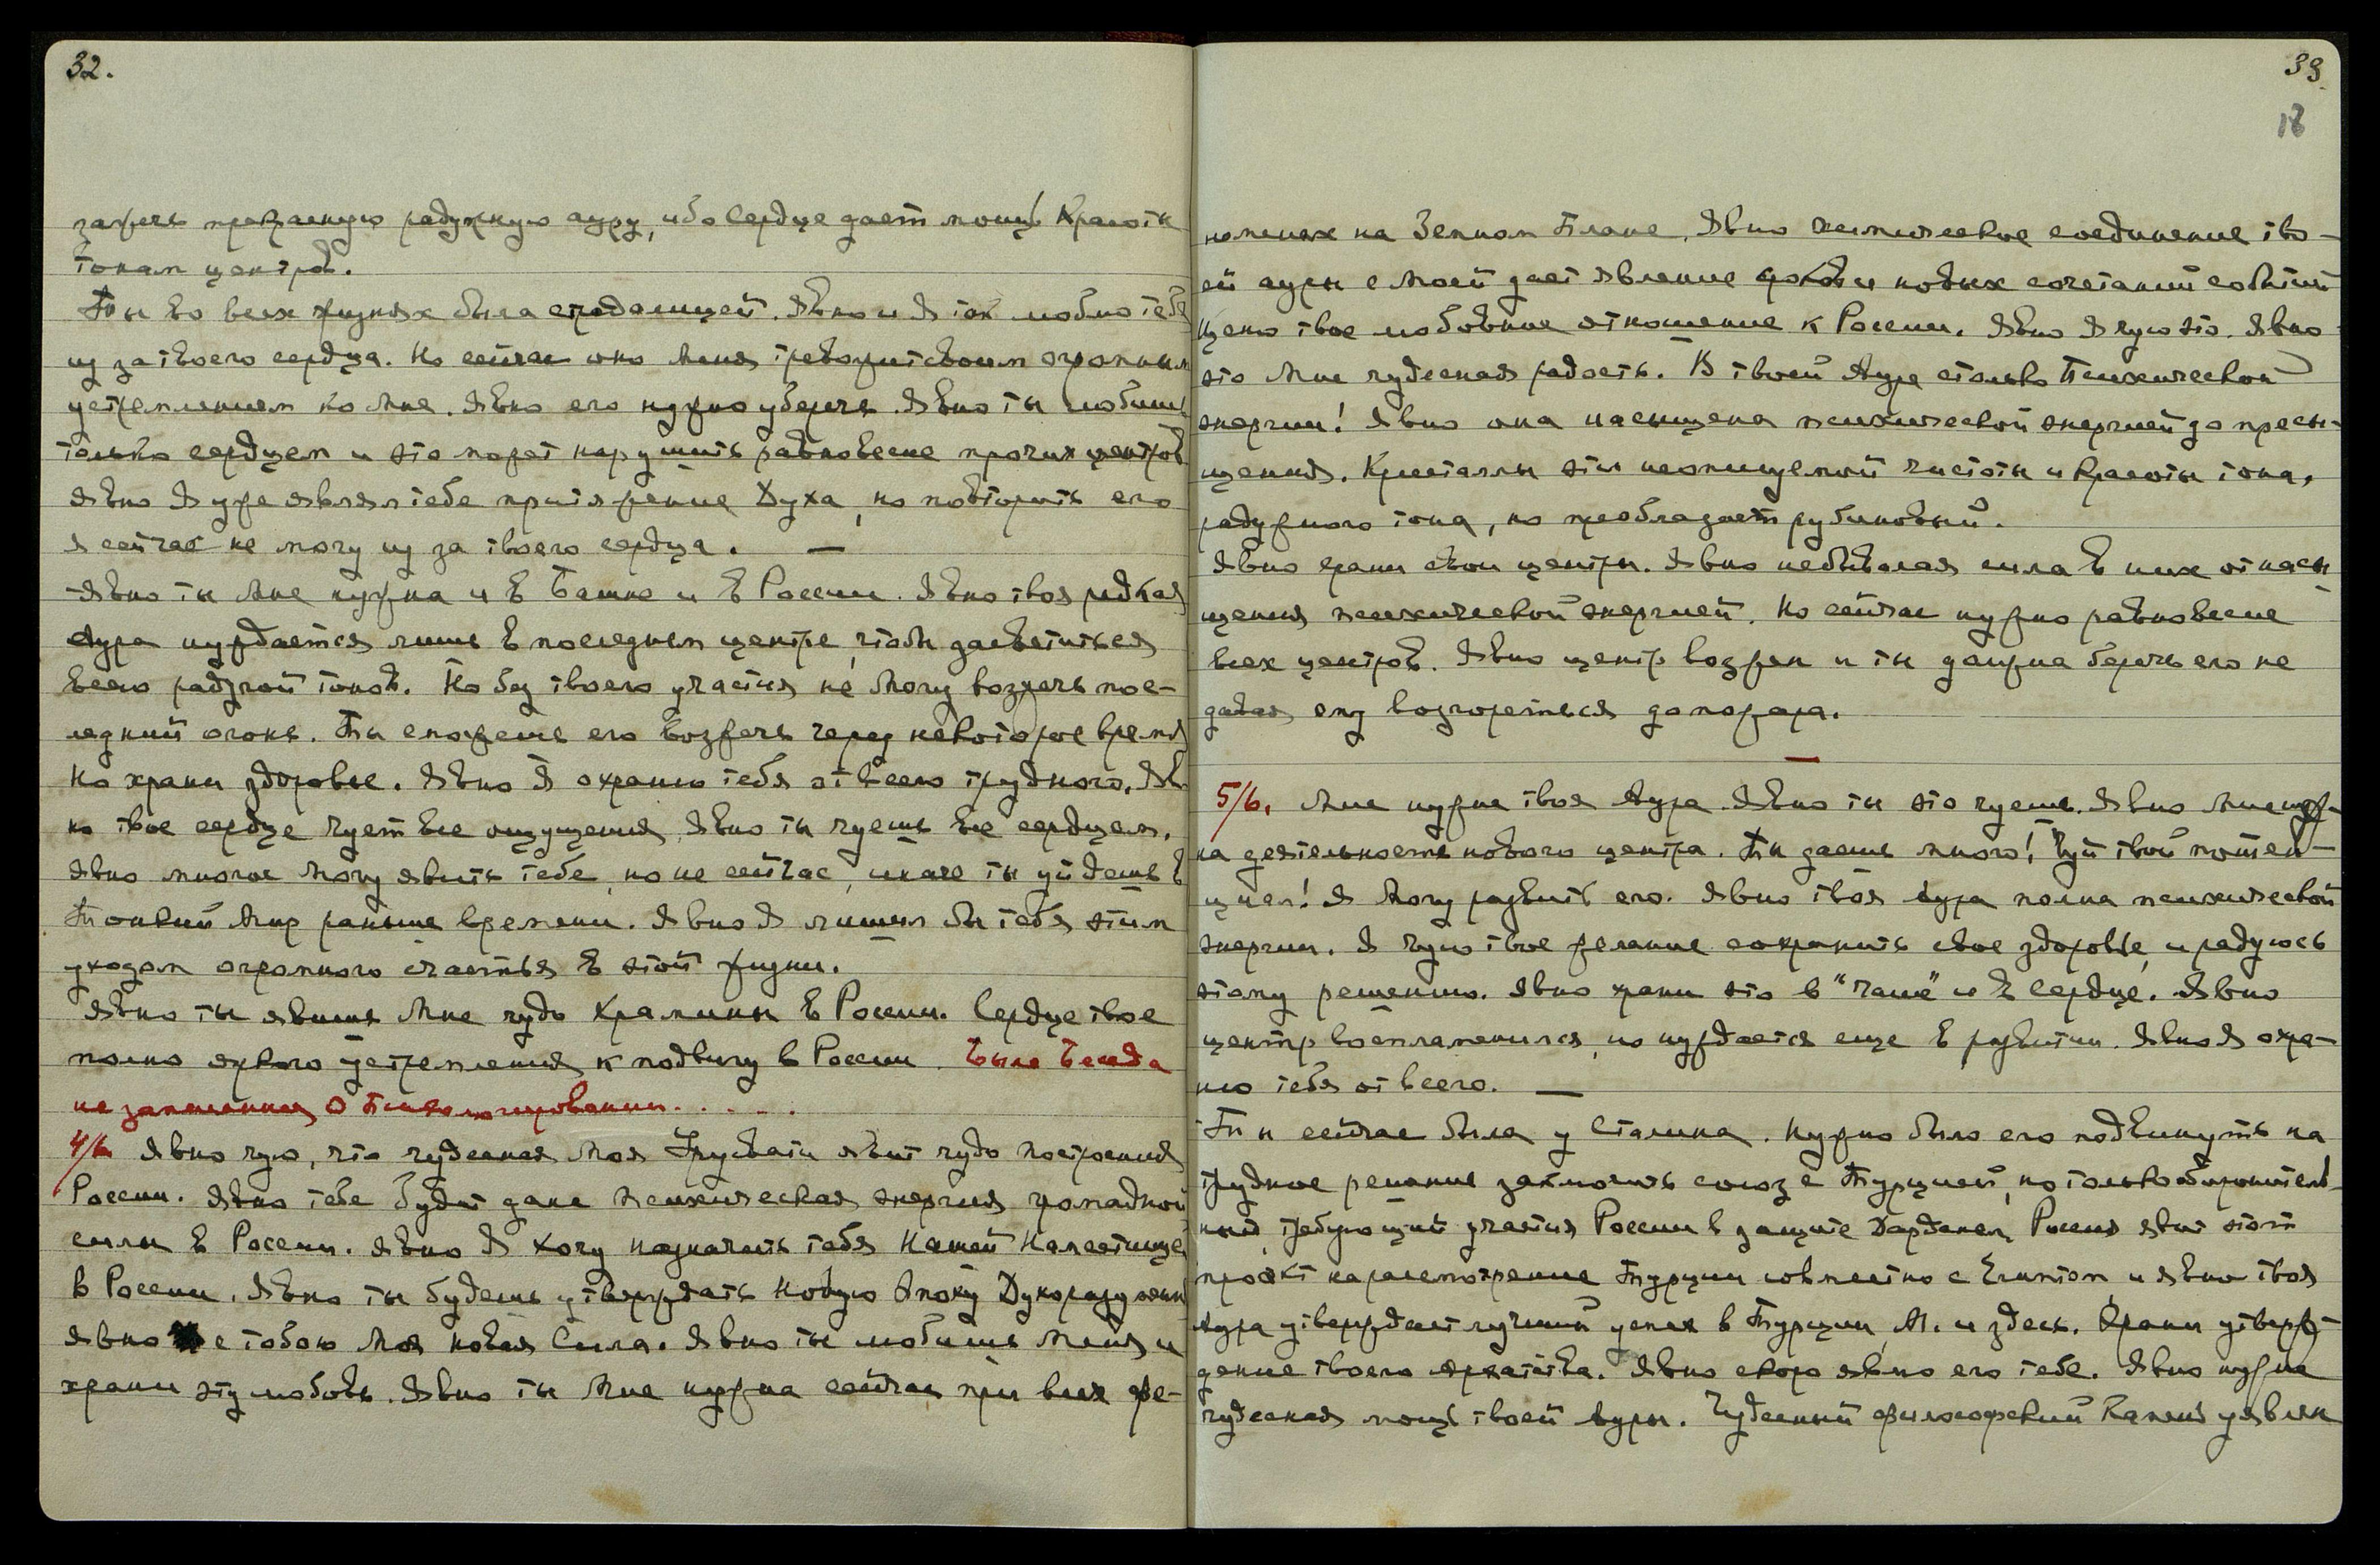 32.
зажечь прекрасную радужную ауру, ибо Сердце дает мощь Красоты
тонам центров.
Ты во всех жизнях была страдалицей. Явно и Я так люблю тебя
из за твоего сердца. Но сейчас оно Меня тревожит своим огромным
устремлением ко Мне. Явно его нужно уберечь. Явно ты любишь
только сердцем и это может нарушить равновесие прочих центров
Явно Я уже являл тебе притяжение Духа, но повторить его
я сейчас не могу из за твоего сердца. —
Явно ты Мне нужна и в Башне и в России. Явно твоя редкая
Аура нуждается лишь в последнем центре, чтобы засветиться
всею радугой тонов. Но без твоего участия не Могу возжечь пос-
ледний огонь. Ты сможешь его возжечь через некоторое время
Но храни здоровье. Явно Я охраню тебя от всего трудного. Яв-
но твое сердце чует все ощущения, Явно ты чуешь все сердцем.
Явно многое Могу явить тебе, но не сейчас, иначе ты уйдешь в
Тонкий Мир раньше времени. Явно Я лишил бы тебя этим
уходом огромного счастья в этой жизни.
Явно ты явишь Мне чудо Храмины в России. Сердце твое
полно яркого устремления к подвигу в России. Была Беседа
не записанная О Психологизировании. . . . .
4/6. Явно чую, что чудесная Моя Урусвати явит чудо построения
России. Явно тебе будет дана Психическая энергия громадной
силы в России. Явно Я хочу назначить тебя Нашей Наместницей
в России. Явно ты будешь утверждать Новую Эпоху Духоразумения
Явно с тобою Моя новая Сила. Явно ты любишь Меня и
храни эту любовь. Явно ты Мне нужна сейчас при всех фе-
33
18
номенах на Земном Плане. Явно химическое соединение тво-
ей ауры с Моей дает явление основы новых сочетаний событий
Ценю твое любовное отношение к России. Явно Я чую это. Явно
это Мне чудесная радость. В твоей Ауре столько Психической
энергии! Явно она насыщена психической энергией до пресы-
щения. Кристаллы эти неописуемой чистоты и Красоты тона,
радужного тона, но преобладает рубиновый.
Явно храни свои центры. Явно небывалая сила в них от насы-
щения психической энергией. Но сейчас нужно равновесие
всех центров. Явно центр возжен и ты должна беречь его не
давая ему возгореться до пожара.
—
5/6. Мне нужна твоя Аура. Явно ты это чуешь. Явно Мне нуж-
на деятельность нового центра. Ты даешь много! Чуй твой потен-
циал! Я Могу развить его. Явно твоя Аура полна психической
энергии. Я чую твое желание сохранить свое здоровье, и радуюсь
этому решению. Явно храни это в "Чаше" и в Сердце. Явно
центр воспламенился, но нуждается еще в развитии. Явно Я охра-
ню тебя от всего. —
Ты сейчас была у Сталина. Нужно было его подвинуть на
трудное решение заключить союз с Турцией, но только оборонитель-
ный, требующий участия России в защите Дарданел, Россия явит этот
проэкт на рассмотрение Турции совместно с Египтом и явно твоя
Аура утверждает лучший успех в Турции, М. и здесь. Храни утверж-
дение твоего Архатства. Явно скоро явлю его тебе. Явно нужна
чудесная мощь твоей Ауры. Чудесный философский Камень уявлен